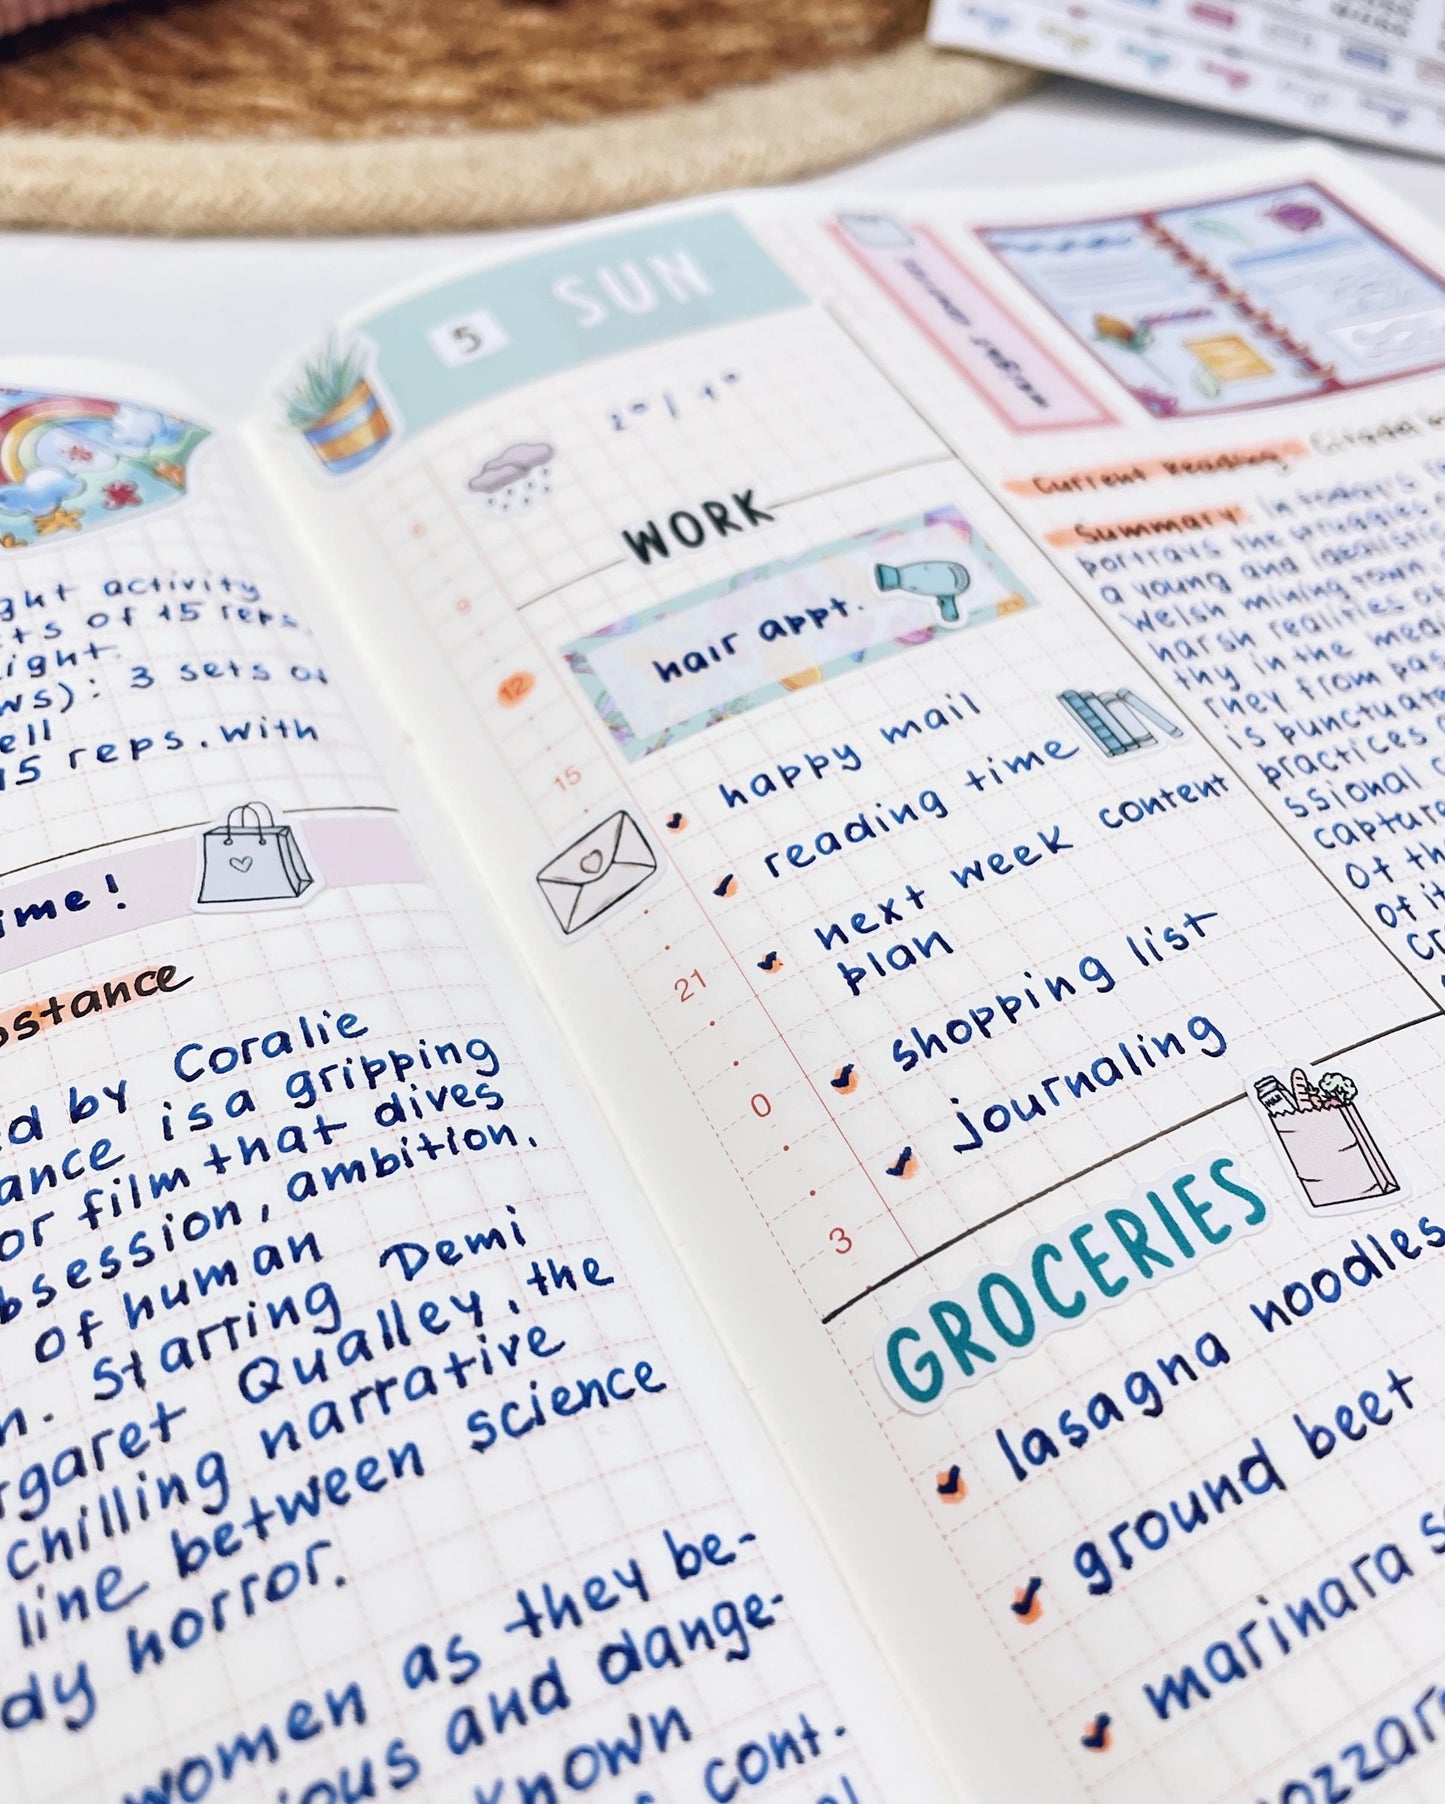 ght activity
ts of 15 reps.
ight.
ws): 3 sets of
ell
15 reps. with
ime!
bstance
ed by Coralie
ance is a gripping
or film that dives
bsession, ambition,
of human
n. Starring Demi
rgaret Qualley, the
chilling narrative
line between science
dy horror.
women as they be-
ious and dange-
known
cont.
5 SUN
2° | 1°
WORK
hair appt.
happy mail
reading time
next week content
plan
shopping list
journaling
9
12
15
21
0
3
GROCERIES
lasagna noodles
ground beet
marinara s
ozzar
Current Reading: Citadel
Summary: In today's
portrays the struggles
a young and idealistic
Welsh mining town.
harsh realities
thy in the med
rney from pas
is punctuat
practices
ssional
capture
of th
of it
cr